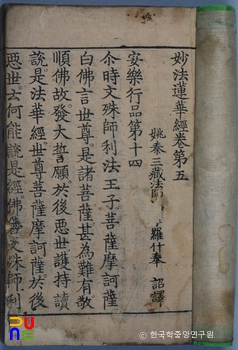 妙法蓮華經卷第五
姚秦三藏法師 羅什奉 詔譯
安樂行品第十四
尒時文殊師利法王子菩薩摩訶薩
白佛言世尊是諸菩薩甚為難有敬
順佛故發大誓願於後惡世護持讀
說是法華經世尊菩薩摩訶薩於後
惡世云何能說是經佛告文殊師利
©한국학중앙연구원